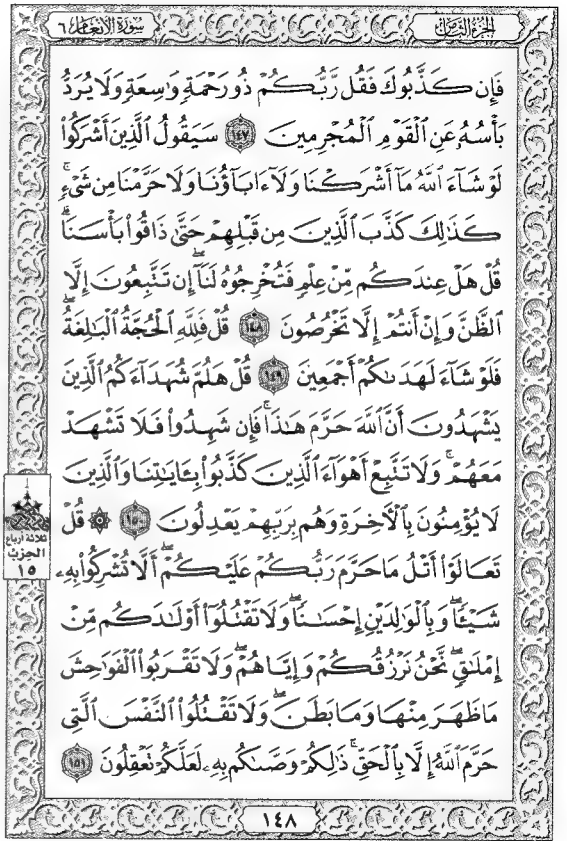 الجزء الثامن
سورة الأنعام ٦
فَإِن كَذَّبُوكَ فَقُل رَّبُّكُمْ ذُو رَحْمَةٍ وَٰسِعَةٍ وَلَا يُرَدُّ
بَأْسُهُۥ عَنِ ٱلْقَوْمِ ٱلْمُجْرِمِينَ ١٤٧ سَيَقُولُ ٱلَّذِينَ أَشْرَكُوا۟
لَوْ شَآءَ ٱللَّهُ مَآ أَشْرَكْنَا وَلَآ ءَابَآؤُنَا وَلَا حَرَّمْنَا مِن شَىْءٍ ۚ
كَذَٰلِكَ كَذَّبَ ٱلَّذِينَ مِن قَبْلِهِمْ حَتَّىٰ ذَاقُوا۟ بَأْسَنَا ۗ
قُلْ هَلْ عِندَكُم مِّنْ عِلْمٍ فَتُخْرِجُوهُ لَنَآ ۖ إِن تَتَّبِعُونَ إِلَّا
ٱلظَّنَّ وَإِنْ أَنتُمْ إِلَّا تَخْرُصُونَ ١٤٨ قُلْ فَلِلَّهِ ٱلْحُجَّةُ ٱلْبَٰلِغَةُ ۖ
فَلَوْ شَآءَ لَهَدَىٰكُمْ أَجْمَعِينَ ١٤٩ قُلْ هَلُمَّ شُهَدَآءَكُمُ ٱلَّذِينَ
يَشْهَدُونَ أَنَّ ٱللَّهَ حَرَّمَ هَٰذَا ۖ فَإِن شَهِدُوا۟ فَلَا تَشْهَدْ
مَعَهُمْ ۚ وَلَا تَتَّبِعْ أَهْوَآءَ ٱلَّذِينَ كَذَّبُوا۟ بِـَٔايَٰتِنَا وَٱلَّذِينَ
لَا يُؤْمِنُونَ بِٱلْـَٔاخِرَةِ وَهُم بِرَبِّهِمْ يَعْدِلُونَ ١٥٠ ۞ قُلْ
تَعَالَوْا۟ أَتْلُ مَا حَرَّمَ رَبُّكُمْ عَلَيْكُمْ ۖ أَلَّا تُشْرِكُوا۟ بِهِۦ
شَيْـًٔا ۖ وَبِٱلْوَٰلِدَيْنِ إِحْسَٰنًا ۖ وَلَا تَقْتُلُوٓا۟ أَوْلَٰدَكُم مِّنْ
إِمْلَٰقٍ ۖ نَّحْنُ نَرْزُقُكُمْ وَإِيَّاهُمْ ۖ وَلَا تَقْرَبُوا۟ ٱلْفَوَٰحِشَ
مَا ظَهَرَ مِنْهَا وَمَا بَطَنَ ۖ وَلَا تَقْتُلُوا۟ ٱلنَّفْسَ ٱلَّتِى
حَرَّمَ ٱللَّهُ إِلَّا بِٱلْحَقِّ ۚ ذَٰلِكُمْ وَصَّىٰكُم بِهِۦ لَعَلَّكُمْ تَعْقِلُونَ ١٥١
ثلاثة أرباع
الحزب
١٥
١٤٨